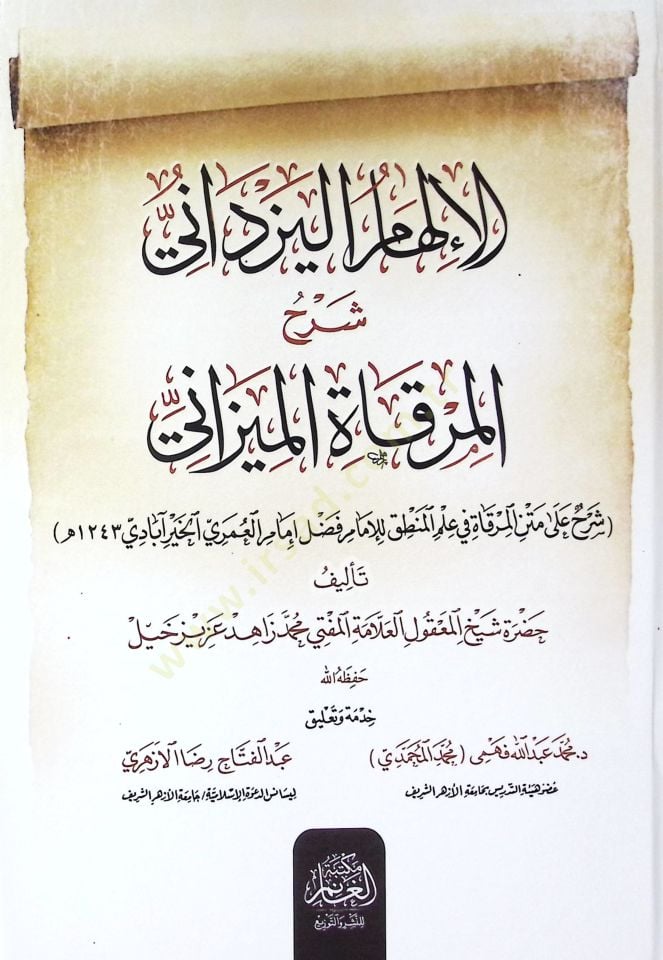 الإلهام اليزداني
شرح
المرقاة الميزاني
(شرح على متن المرقاة في علم المنطق للإمام فضل إمام العمري الخيرآبادي ١٢٤٣هـ)
تأليف
حضرة شيخ المعقول العلامة المفتي محمد زاهد عزيز خيل
حفظه الله
خدمة وتعليق
د. محمد عبد الله فهمي (محمد المحمدي)
عبد الفتاح رضا الازهري
عضو هيئة التدريس بجامعة الأزهر الشريف
ليسانس الدعوة الإسلامية / جامعة الأزهر الشريف
مكتبة
الغانم
للنشر والتوزيع